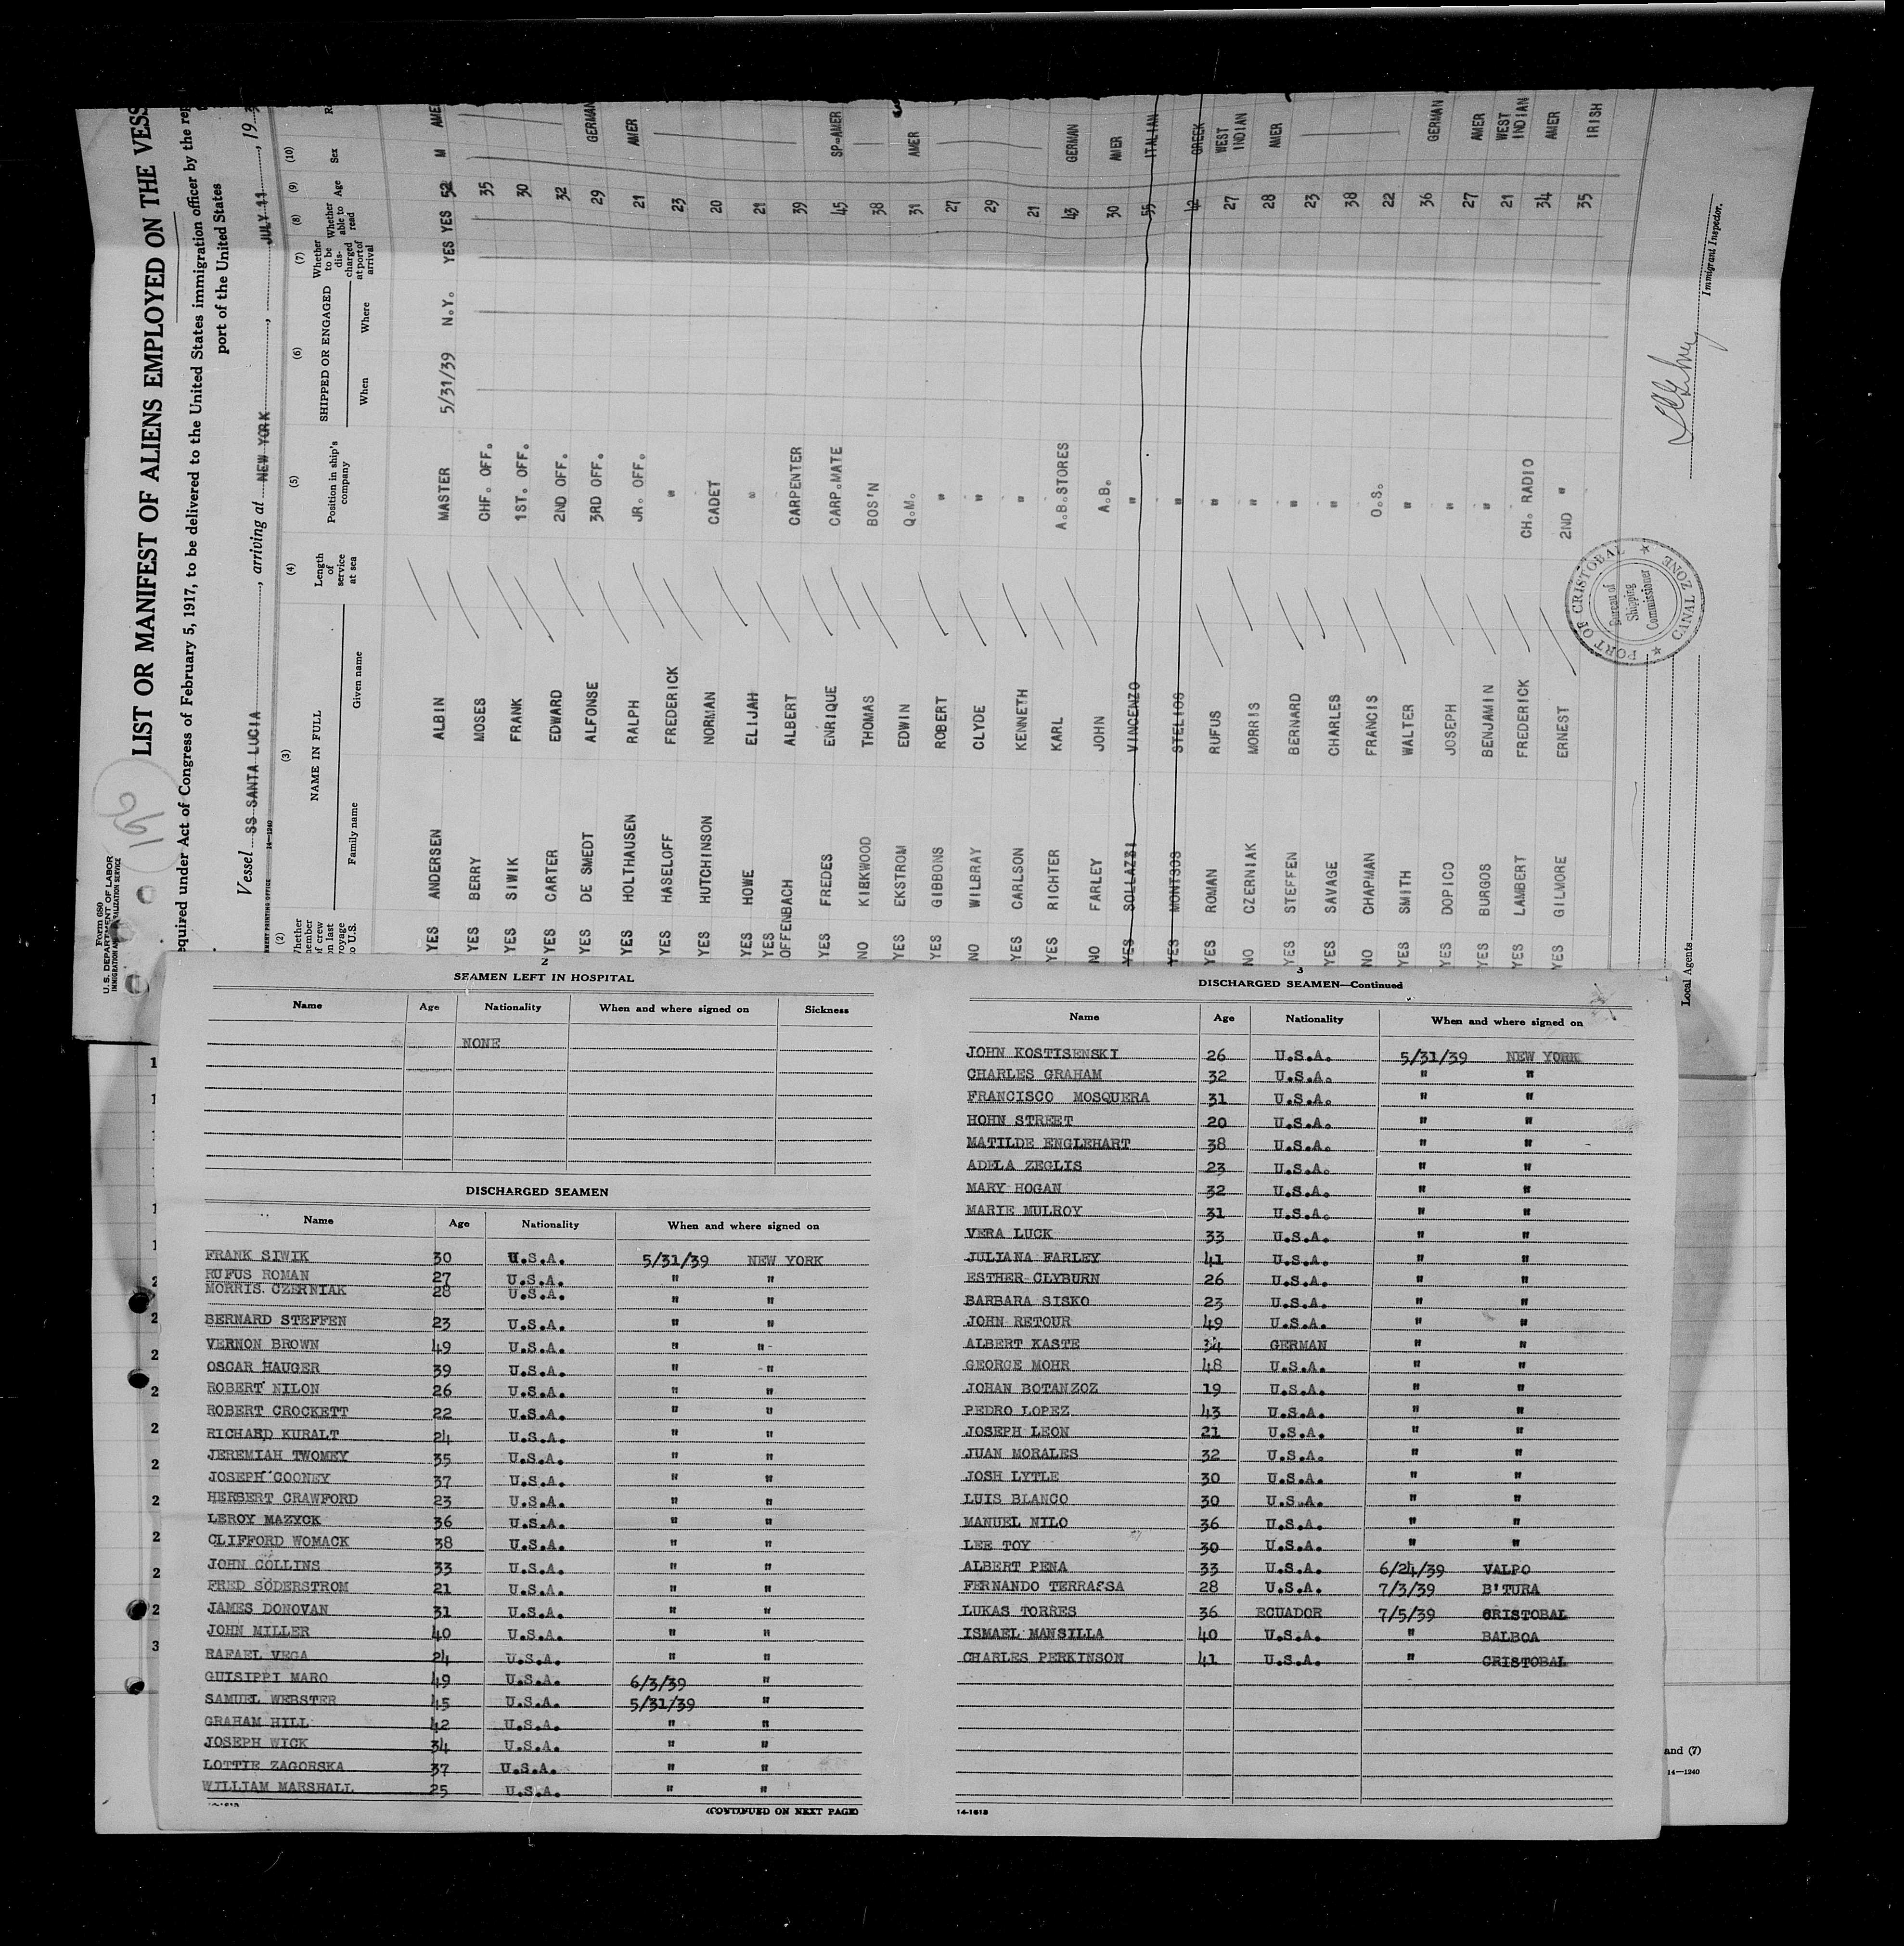 Form 680
U.S. DEPARTMENT OF LABOR
LIST OR MANIFEST OF ALIENS EMPLOYED ON THE
equired under Act of Congress of February 5, 1917, to be delivered to the United States immigration officer by the
port of the United States
Vessel SS SANTA LUCIA, arriving at NEW YORK, JULY 11, 19
(2) (3) (4) (5) (6) (7) (8) (9) (10)
NAME IN FULL Length of service at sea Position in ship's company SHIPPED OR ENGAGED Whether to be discharged at port of arrival Whether able to read Age Sex
Family name Given name When Where
YES ANDERSEN ALBIN MASTER 5/31/39 N.Y. YES YES 52 M AME
YES BERRY MOSES CHF. OFF. 35
YES SIWIK FRANK 1ST. OFF. 30
YES CARTER EDWARD 2ND OFF. 32
YES DE SMEDT ALFONSE 3RD OFF. 29 GERMAN
YES HOLTHAUSEN RALPH JR. OFF. 21 AMER
YES HASELOFF FREDERICK " 23
YES HUTCHINSON NORMAN CADET 20
YES HOWE ELIJAH " 21
YES OFFENBACH ALBERT CARPENTER 39
YES FREDES ENRIQUE CARP.MATE 45 SP-AMER
NO KIEKWOOD THOMAS BOS'N 38
YES EKSTROM EDWIN Q.M. 31 AMER
YES GIBBONS ROBERT " 27
NO WILBRAY CLYDE " 29
YES CARLSON KENNETH " 21
YES RICHTER KARL A.B.STORES 43 GERMAN
NO FARLEY JOHN A.B. 30 AMER
YES SOLLAZZI VINCENZO " 55 ITALIAN
YES MONTSOS STELIOS " 42 GREEK
YES ROMAN RUFUS " 27 WEST INDIAN
NO CZERNIAK MORRIS " 28 AMER
YES STEFFEN BERNARD " 23
YES SAVAGE CHARLES " 38
NO CHAPMAN FRANCIS O.S. 22
YES SMITH WALTER " 36 GERMAN
YES DOPICO JOSEPH " 27 AMER
YES BURGOS BENJAMIN " 21 WEST INDIAN
YES LAMBERT FREDERICK CH. RADIO 34 AMER
YES GILMORE ERNEST 2ND " 35 IRISH
PORT OF CRISTOBAL
CANAL ZONE
Bureau of
Shipping
Commissioner
Immigrant Inspector.
Local Agents
2
SEAMEN LEFT IN HOSPITAL
Name Age Nationality When and where signed on Sickness
NONE
DISCHARGED SEAMEN
Name Age Nationality When and where signed on
FRANK SIWIK 30 U.S.A. 5/31/39 NEW YORK
RUFUS ROMAN 27 U.S.A. " "
MORRIS. CZERNIAK 28 U.S.A. " "
BERNARD STEFFEN 23 U.S.A. " "
VERNON BROWN 49 U.S.A. " "
OSCAR HAUGER 39 U.S.A. " "
ROBERT NILON 26 U.S.A. " "
ROBERT CROCKETT 22 U.S.A. " "
RICHARD KURALT 24 U.S.A. " "
JEREMIAH TWOMEY 35 U.S.A. " "
JOSEPH COONEY 37 U.S.A. " "
HERBERT CRAWFORD 23 U.S.A. " "
LEROY MAZYCK 36 U.S.A. " "
CLIFFORD WOMACK 38 U.S.A. " "
JOHN COLLINS 33 U.S.A. " "
FRED SODERSTROM 21 U.S.A. " "
JAMES DONOVAN 31 U.S.A. " "
JOHN MILLER 40 U.S.A. " "
RAFAEL VEGA 24 U.S.A. " "
GUISIPPI MARO 49 U.S.A. 6/3/39 "
SAMUEL WEBSTER 45 U.S.A. 5/31/39 "
GRAHAM HILL 42 U.S.A. " "
JOSEPH WICK 34 U.S.A. " "
LOTTIE ZAGORSKA 37 U.S.A. " "
WILLIAM MARSHALL 25 U.S.A. " "
(CONTINUED ON NEXT PAGE)
3
DISCHARGED SEAMEN—Continued
Name Age Nationality When and where signed on
JOHN KOSTISENSKI 26 U.S.A. 5/31/39 NEW YORK
CHARLES GRAHAM 32 U.S.A. " "
FRANCISCO MOSQUERA 31 U.S.A. " "
HOHN STREET 20 U.S.A. " "
MATILDE ENGLEHART 38 U.S.A. " "
ADELA ZEGLIS 23 U.S.A. " "
MARY HOGAN 32 U.S.A. " "
MARIE MULROY 31 U.S.A. " "
VERA LUCK 33 U.S.A. " "
JULIANA FARLEY 41 U.S.A. " "
ESTHER CLYBURN 26 U.S.A. " "
BARBARA SISKO 23 U.S.A. " "
JOHN RETOUR 49 U.S.A. " "
ALBERT KASTE 34 GERMAN " "
GEORGE MOHR 48 U.S.A. " "
JOHAN BOTANZOZ 19 U.S.A. " "
PEDRO LOPEZ 43 U.S.A. " "
JOSEPH LEON 21 U.S.A. " "
JUAN MORALES 32 U.S.A. " "
JOSH LYTLE 30 U.S.A. " "
LUIS BLANCO 30 U.S.A. " "
MANUEL NILO 36 U.S.A. " "
LEE TOY 30 U.S.A. " "
ALBERT PENA 33 U.S.A. 6/24/39 VALPO
FERNANDO TERRASSA 28 U.S.A. 7/3/39 B'TURA
LUKAS TORRES 36 ECUADOR 7/5/39 CRISTOBAL
ISMAEL MANSILLA 40 U.S.A. " BALBOA
CHARLES PERKINSON 41 U.S.A. " CRISTOBAL
14-1613
and (7)
14—1240